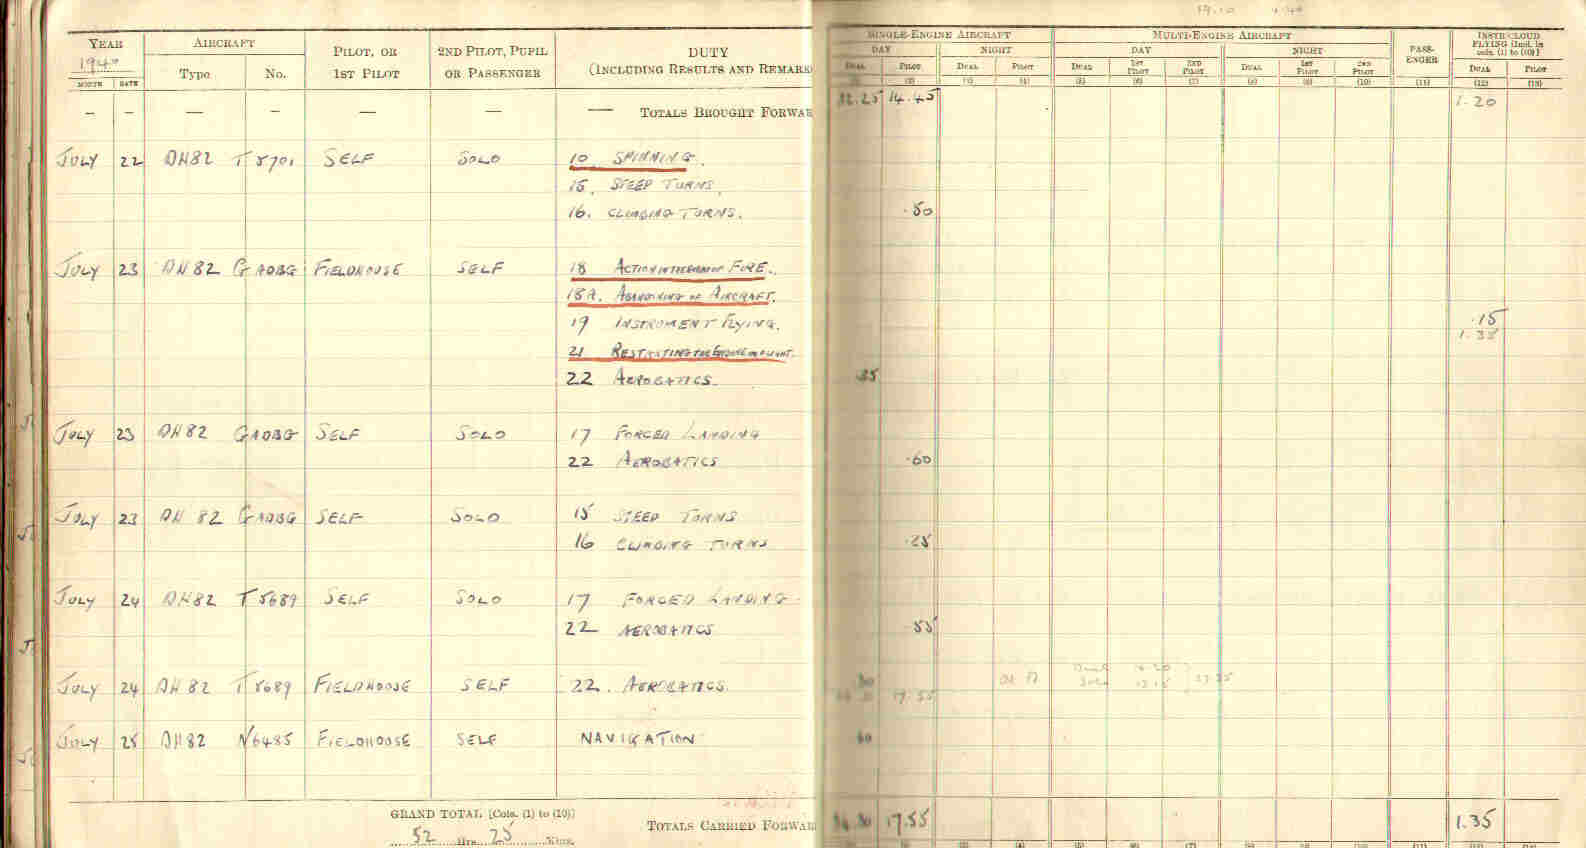 19.10 4.40
YEAR AIRCRAFT PILOT, OR 2ND PILOT, PUPIL DUTY SINGLE-ENGINE AIRCRAFT MULTI-ENGINE AIRCRAFT PASS- INSTR/CLOUD
1940 Type No. 1ST PILOT OR PASSENGER (INCLUDING RESULTS AND REMARK DAY NIGHT DAY NIGHT ENGER FLYING [Incl. in
cols. (1) to (10)]
MONTH DATE DUAL PILOT DUAL PILOT DUAL 1ST PILOT 2ND PILOT DUAL 1ST PILOT 2ND PILOT DUAL PILOT
(2) (3) (4) (5) (6) (7) (8) (9) (10) (11) (12) (13)
— — — — — — — TOTALS BROUGHT FORWAR 32.25 14.45 1.20
JULY 22 DH82 T5701 SELF SOLO 10 SPINNING.
15. STEEP TURNS.
16. CLIMBING TURNS. .50
JULY 23 DH82 GADBG FIELDHOUSE SELF 18 ACTION IN THE EVENT OF FIRE.
18A. ABANDONING OF AIRCRAFT.
19 INSTRUMENT FLYING. .15
1.35
21 RESTARTING THE ENGINE IN FLIGHT.
22 AEROBATICS. .35
JULY 23 DH82 GADBG SELF SOLO 17 FORCED LANDING
22 AEROBATICS .60
JULY 23 DH82 GADBG SELF SOLO 15 STEEP TURNS
16 CLIMBING TURNS .25
JULY 24 DH82 T5689 SELF SOLO 17 FORCED LANDING
22 AEROBATICS .55
JULY 24 DH82 T5689 FIELDHOUSE SELF 22. AEROBATICS. .30
17.55
JULY 25 DH82 N6485 FIELDHOUSE SELF NAVIGATION
GRAND TOTAL [Cols. (1) to (10)]
52 Hrs. 25 Mins. TOTALS CARRIED FORWAR 34.30 17.55 1.35